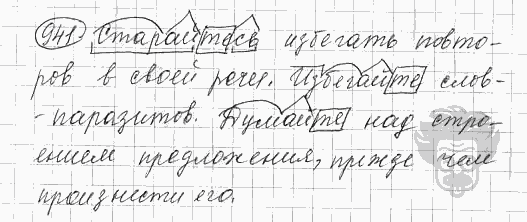 941. Старайтесь избегать повто-
ров в своей речи. Избегайте слов-
-паразитов. Думайте над стро-
ением предложения, прежде чем
произнести его.